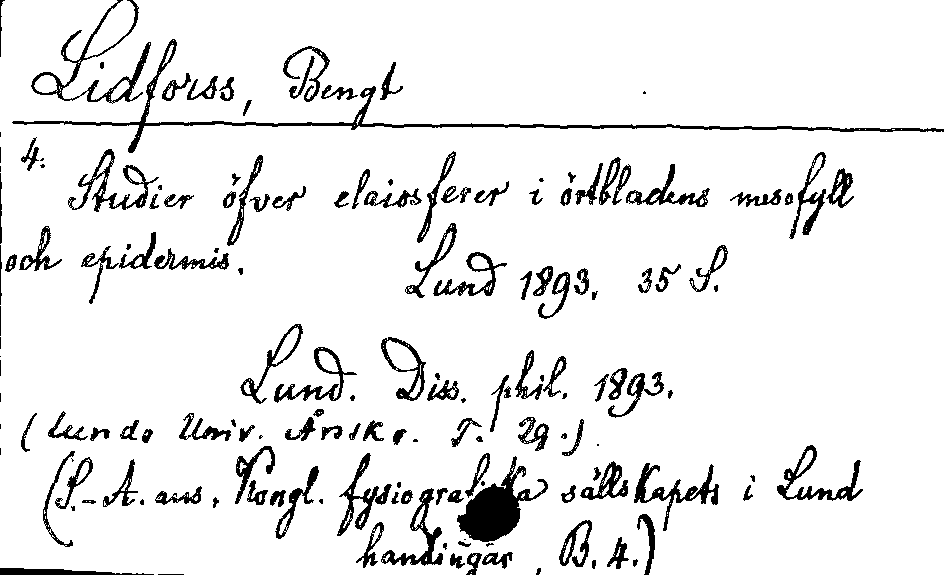 Lidforss, Bengt
4.
Studier öfver elaiosferer i örtbladens mesofyll
och epidermis.
Lund 1893. 35 S.
Lund. Diss. phil. 1893.
(Lunds Univ. Årsskr. T. 29.)
(S.-A. aus. Kongl. fysiografiska sällskapets i Lund
handlingar, B. 4.)